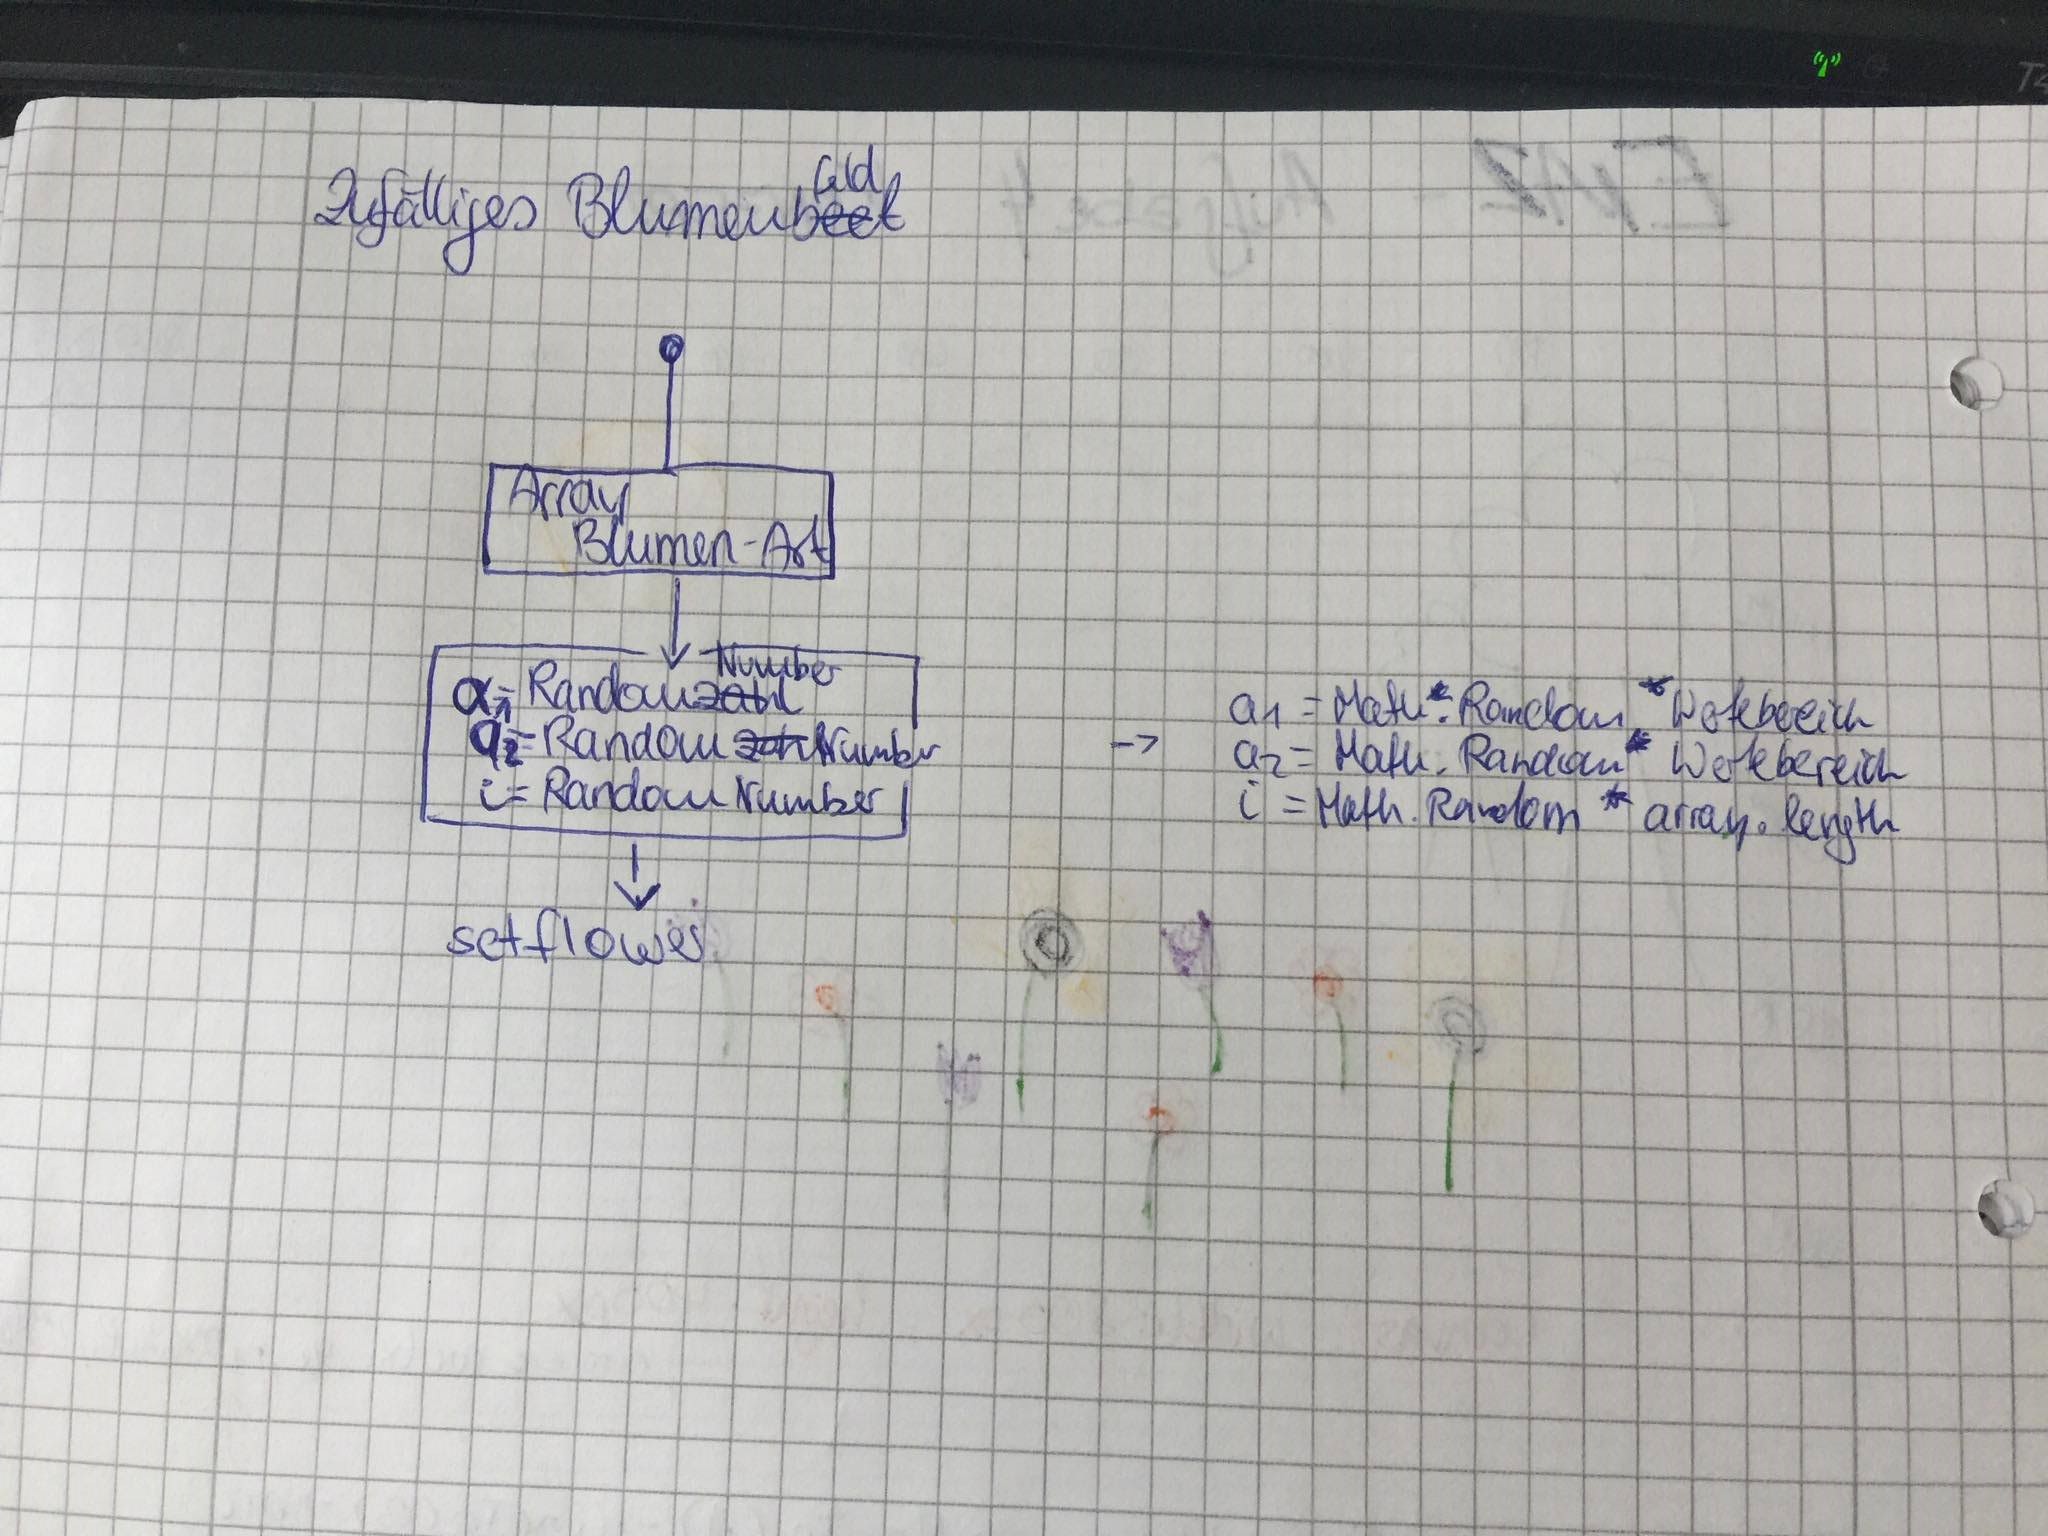 Zufälliges Blumenfeld
Array
Blumen-Art
a1 = Random Number
a2 = Random Number
i = Random Number
setflower
-> a1 = Math. Random * Wertebereich
a2 = Math. Random * Wertebereich
i = Math. Random * array. length